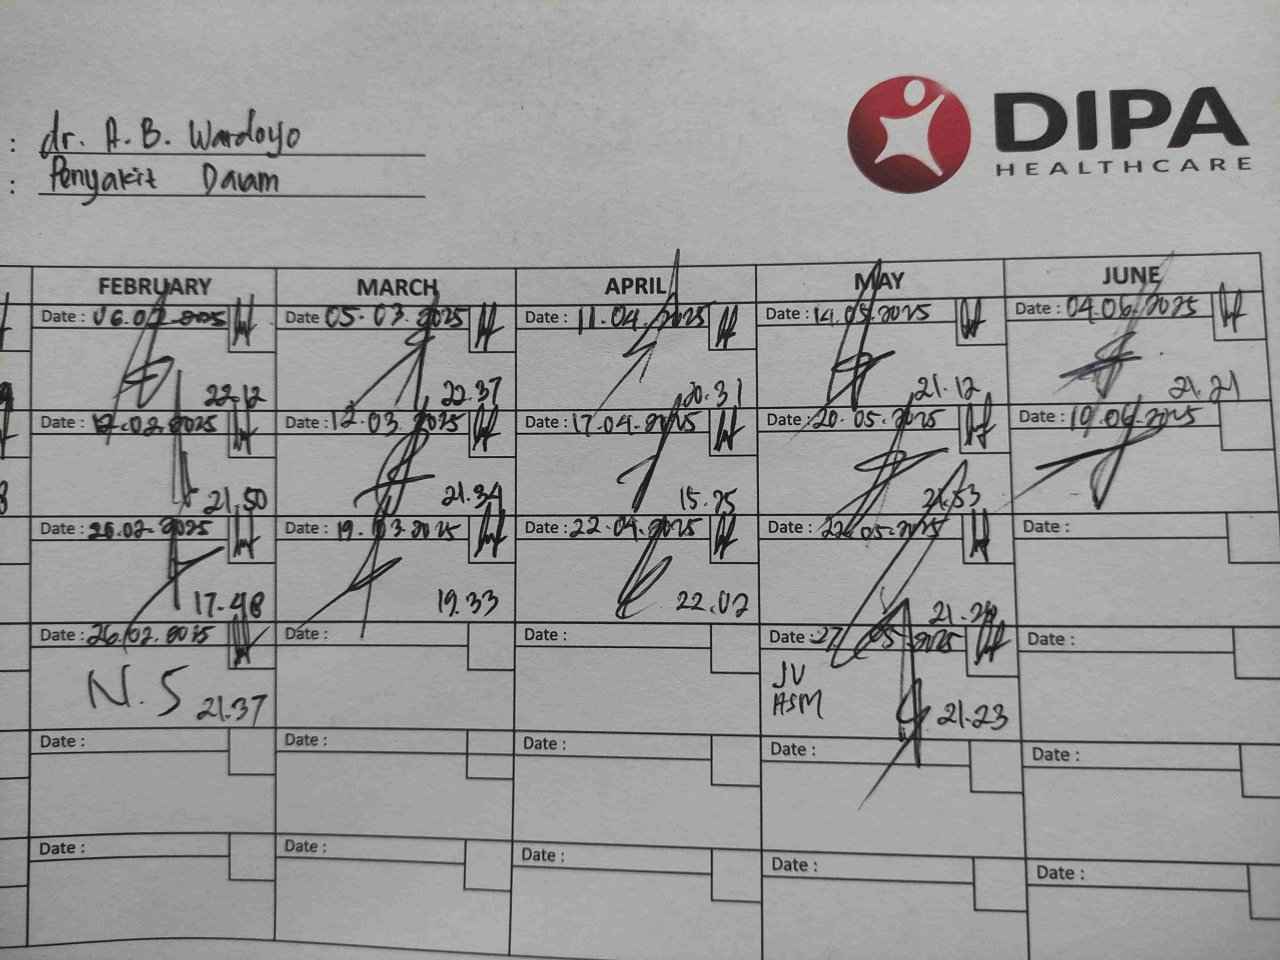 : dr. A. B. Wardoyo
: Penyakit Dalam
DIPA
HEALTHCARE
FEBRUARY MARCH APRIL MAY JUNE
Date : 06.02.2025 Date : 05.03.2025 Date : 11.04.2025 Date : 14.05.2025 Date : 04.06.2025
22.12 22.37 20.31 21.12 21.21
Date : 12.02.2025 Date : 12.03.2025 Date : 17.04.2025 Date : 20.05.2025 Date : 19.06.2025
21.50 21.34 15.25 21.53
Date : 20.02.2025 Date : 19.03.2025 Date : 22.04.2025 Date : 22.05.2025 Date :
17.48 19.33 22.02
Date : 26.02.2025 Date : Date : Date : 27.05.2025 Date :
N.S 21.37 JV
ASM 21.23
Date : Date : Date : Date : Date :
Date : Date : Date : Date : Date :